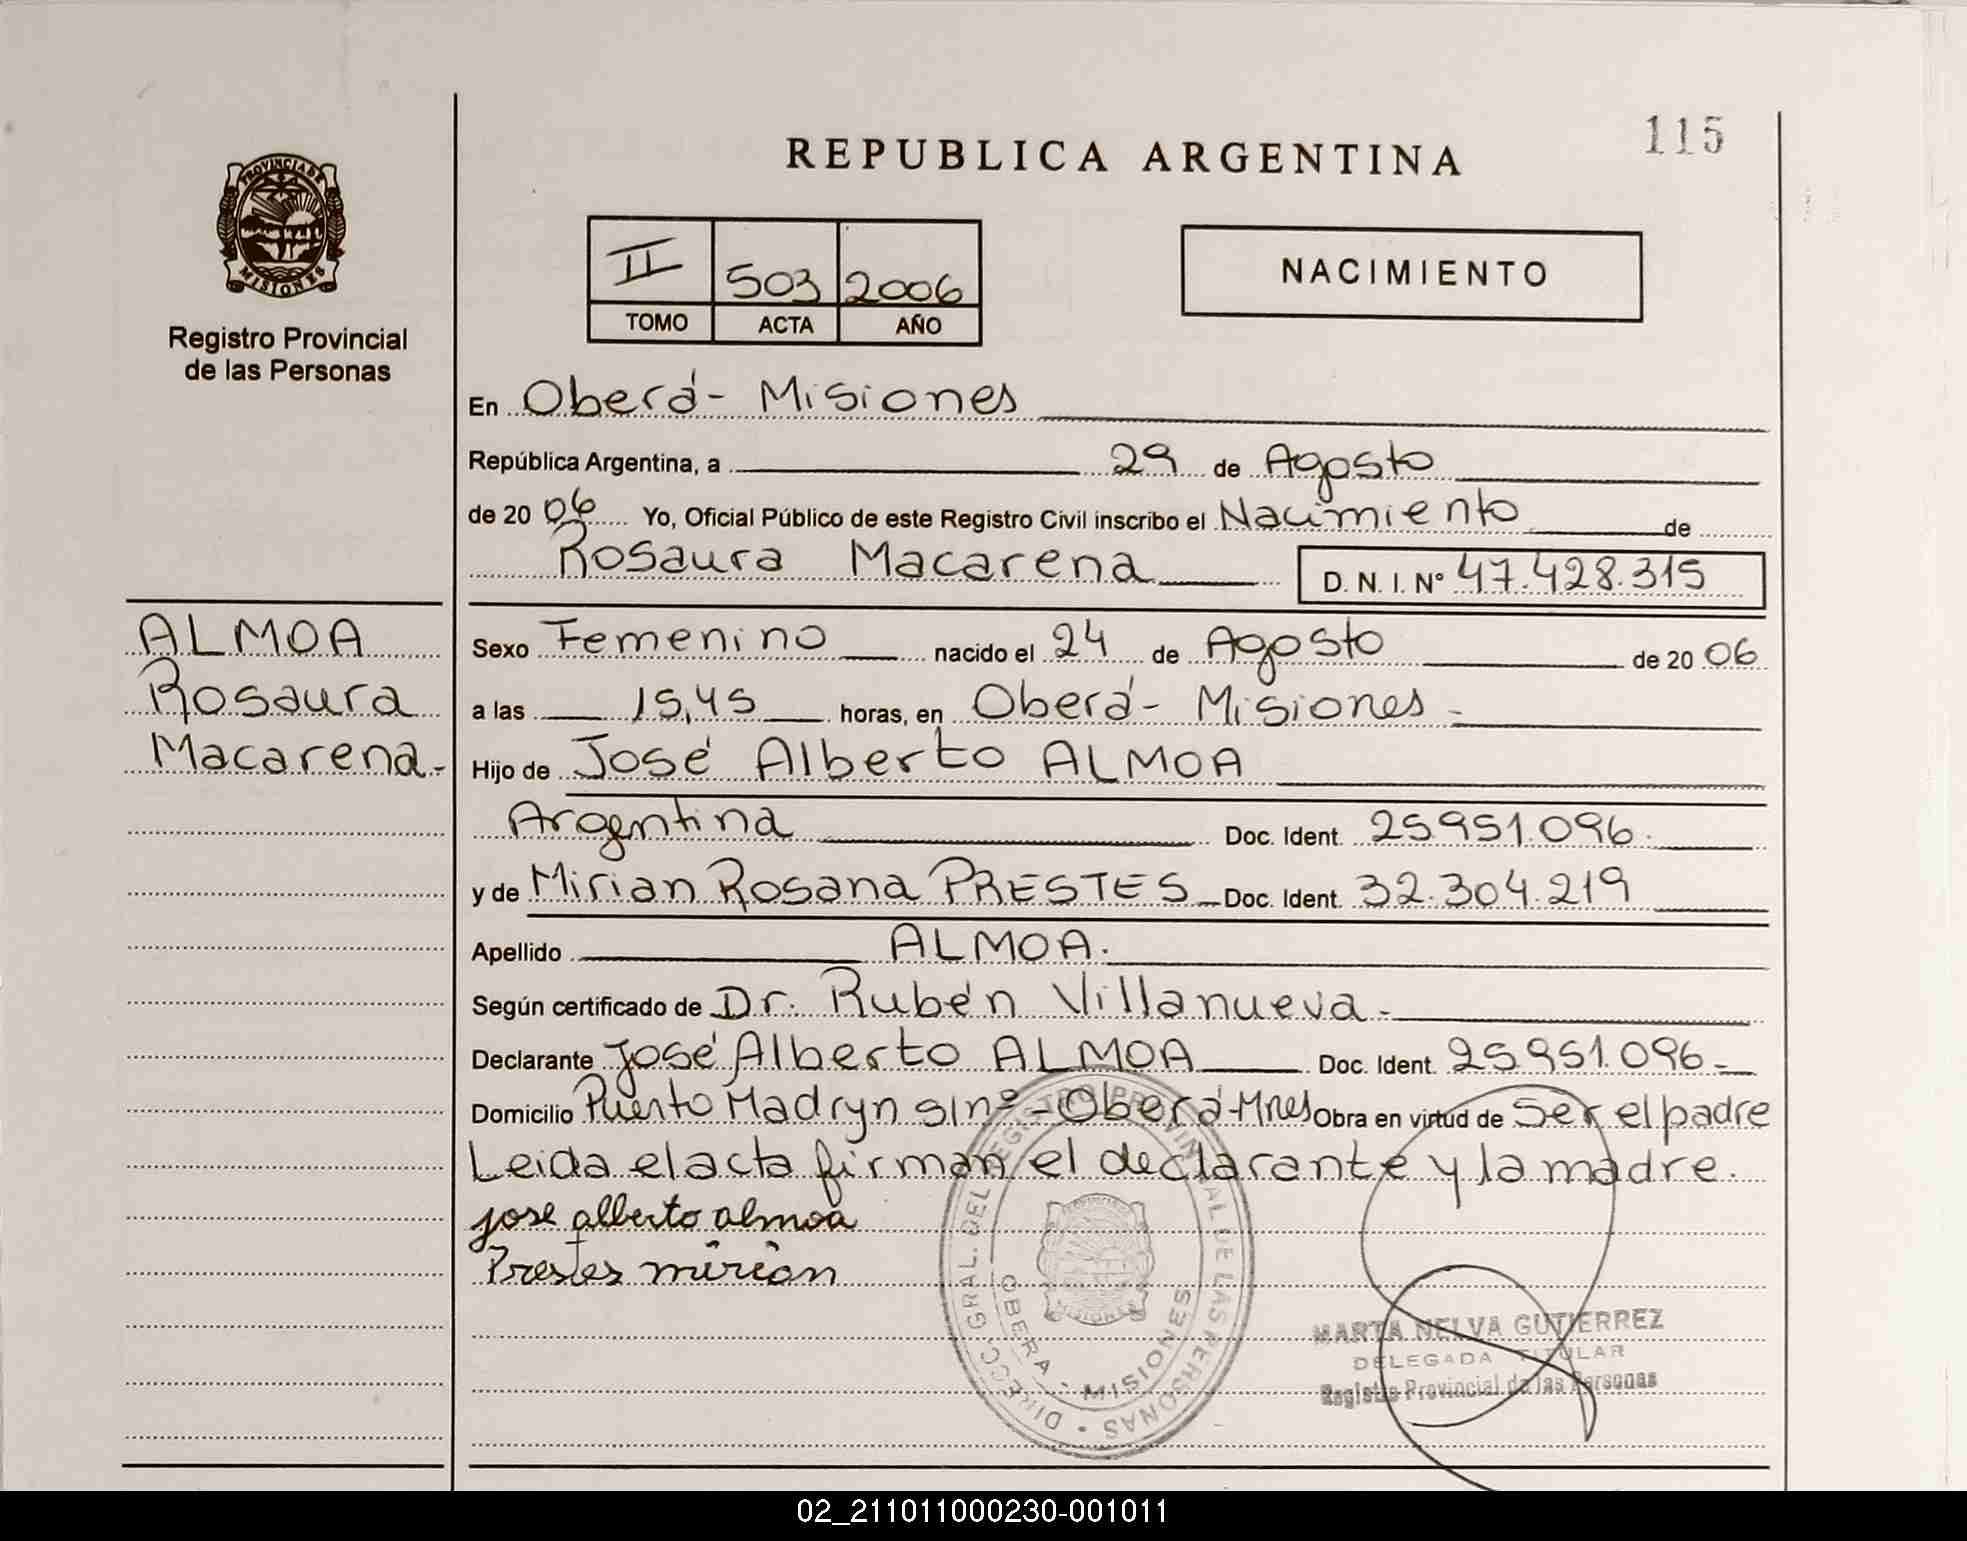 115
REPUBLICA ARGENTINA
PROVINCIA DE
MISIONES
Registro Provincial
de las Personas
II 503 2006
TOMO ACTA AÑO
NACIMIENTO
En Oberá - Misiones
República Argentina, a 29 de Agosto
de 20 06 Yo, Oficial Público de este Registro Civil inscribo el Nacimiento de
Rosaura Macarena D. N. I. Nº 47.428.315
ALMOA
Rosaura
Macarena.-
Sexo Femenino nacido el 24 de Agosto de 20 06
a las 15,45 horas, en Oberá - Misiones -
Hijo de José Alberto ALMOA
Argentina Doc. Ident. 25951.096.
y de Mirian Rosana PRESTES Doc. Ident. 32.304.219
Apellido ALMOA.
Según certificado de Dr. Rubén Villanueva.-
Declarante José Alberto ALMOA Doc. Ident. 25951.096.-
Domicilio Puerto Madryn s/nº - Oberá - Mnes Obra en virtud de Ser el padre
Leida el acta firman el declarante y la madre.
jose alberto almoa
Prestes mirian
DIRECC. GRAL. DEL REGISTRO PROVINCIAL DE LAS PERSONAS
OBERA - MISIONES
MISIONES
MARTA NELVA GUTIERREZ
DELEGADA TITULAR
Registro Provincial de las Personas
02_211011000230-001011